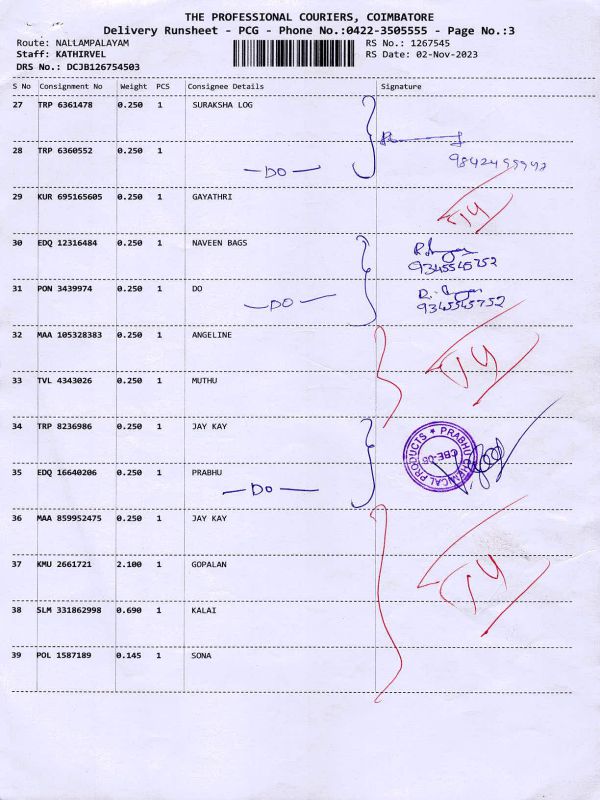 THE PROFESSIONAL COURIERS, COIMBATORE
Delivery Runsheet - PCG - Phone No.:0422-3505555 - Page No.:3
Route: NALLAMPALAYAM RS No.: 1267545
Staff: KATHIRVEL RS Date: 02-Nov-2023
DRS No.: DCJB126754503
S No Consignment No Weight PCS Consignee Details Signature
27 TRP 6361478 0.250 1 SURAKSHA LOG
28 TRP 6360552 0.250 1
— DO —
29 KUR 695165605 0.250 1 GAYATHRI
30 EDQ 12316484 0.250 1 NAVEEN BAGS
9345545752
31 PON 3439974 0.250 1 DO
— DO — 9345545752
32 MAA 105328383 0.250 1 ANGELINE
33 TVL 4343026 0.250 1 MUTHU
34 TRP 8236986 0.250 1 JAY KAY
PRABHU CHEMICAL PRODUCTS ★ CBE-06
35 EDQ 16640206 0.250 1 PRABHU
— DO —
36 MAA 859952475 0.250 1 JAY KAY
37 KMU 2661721 2.100 1 GOPALAN
38 SLM 331862998 0.690 1 KALAI
39 POL 1587189 0.145 1 SONA